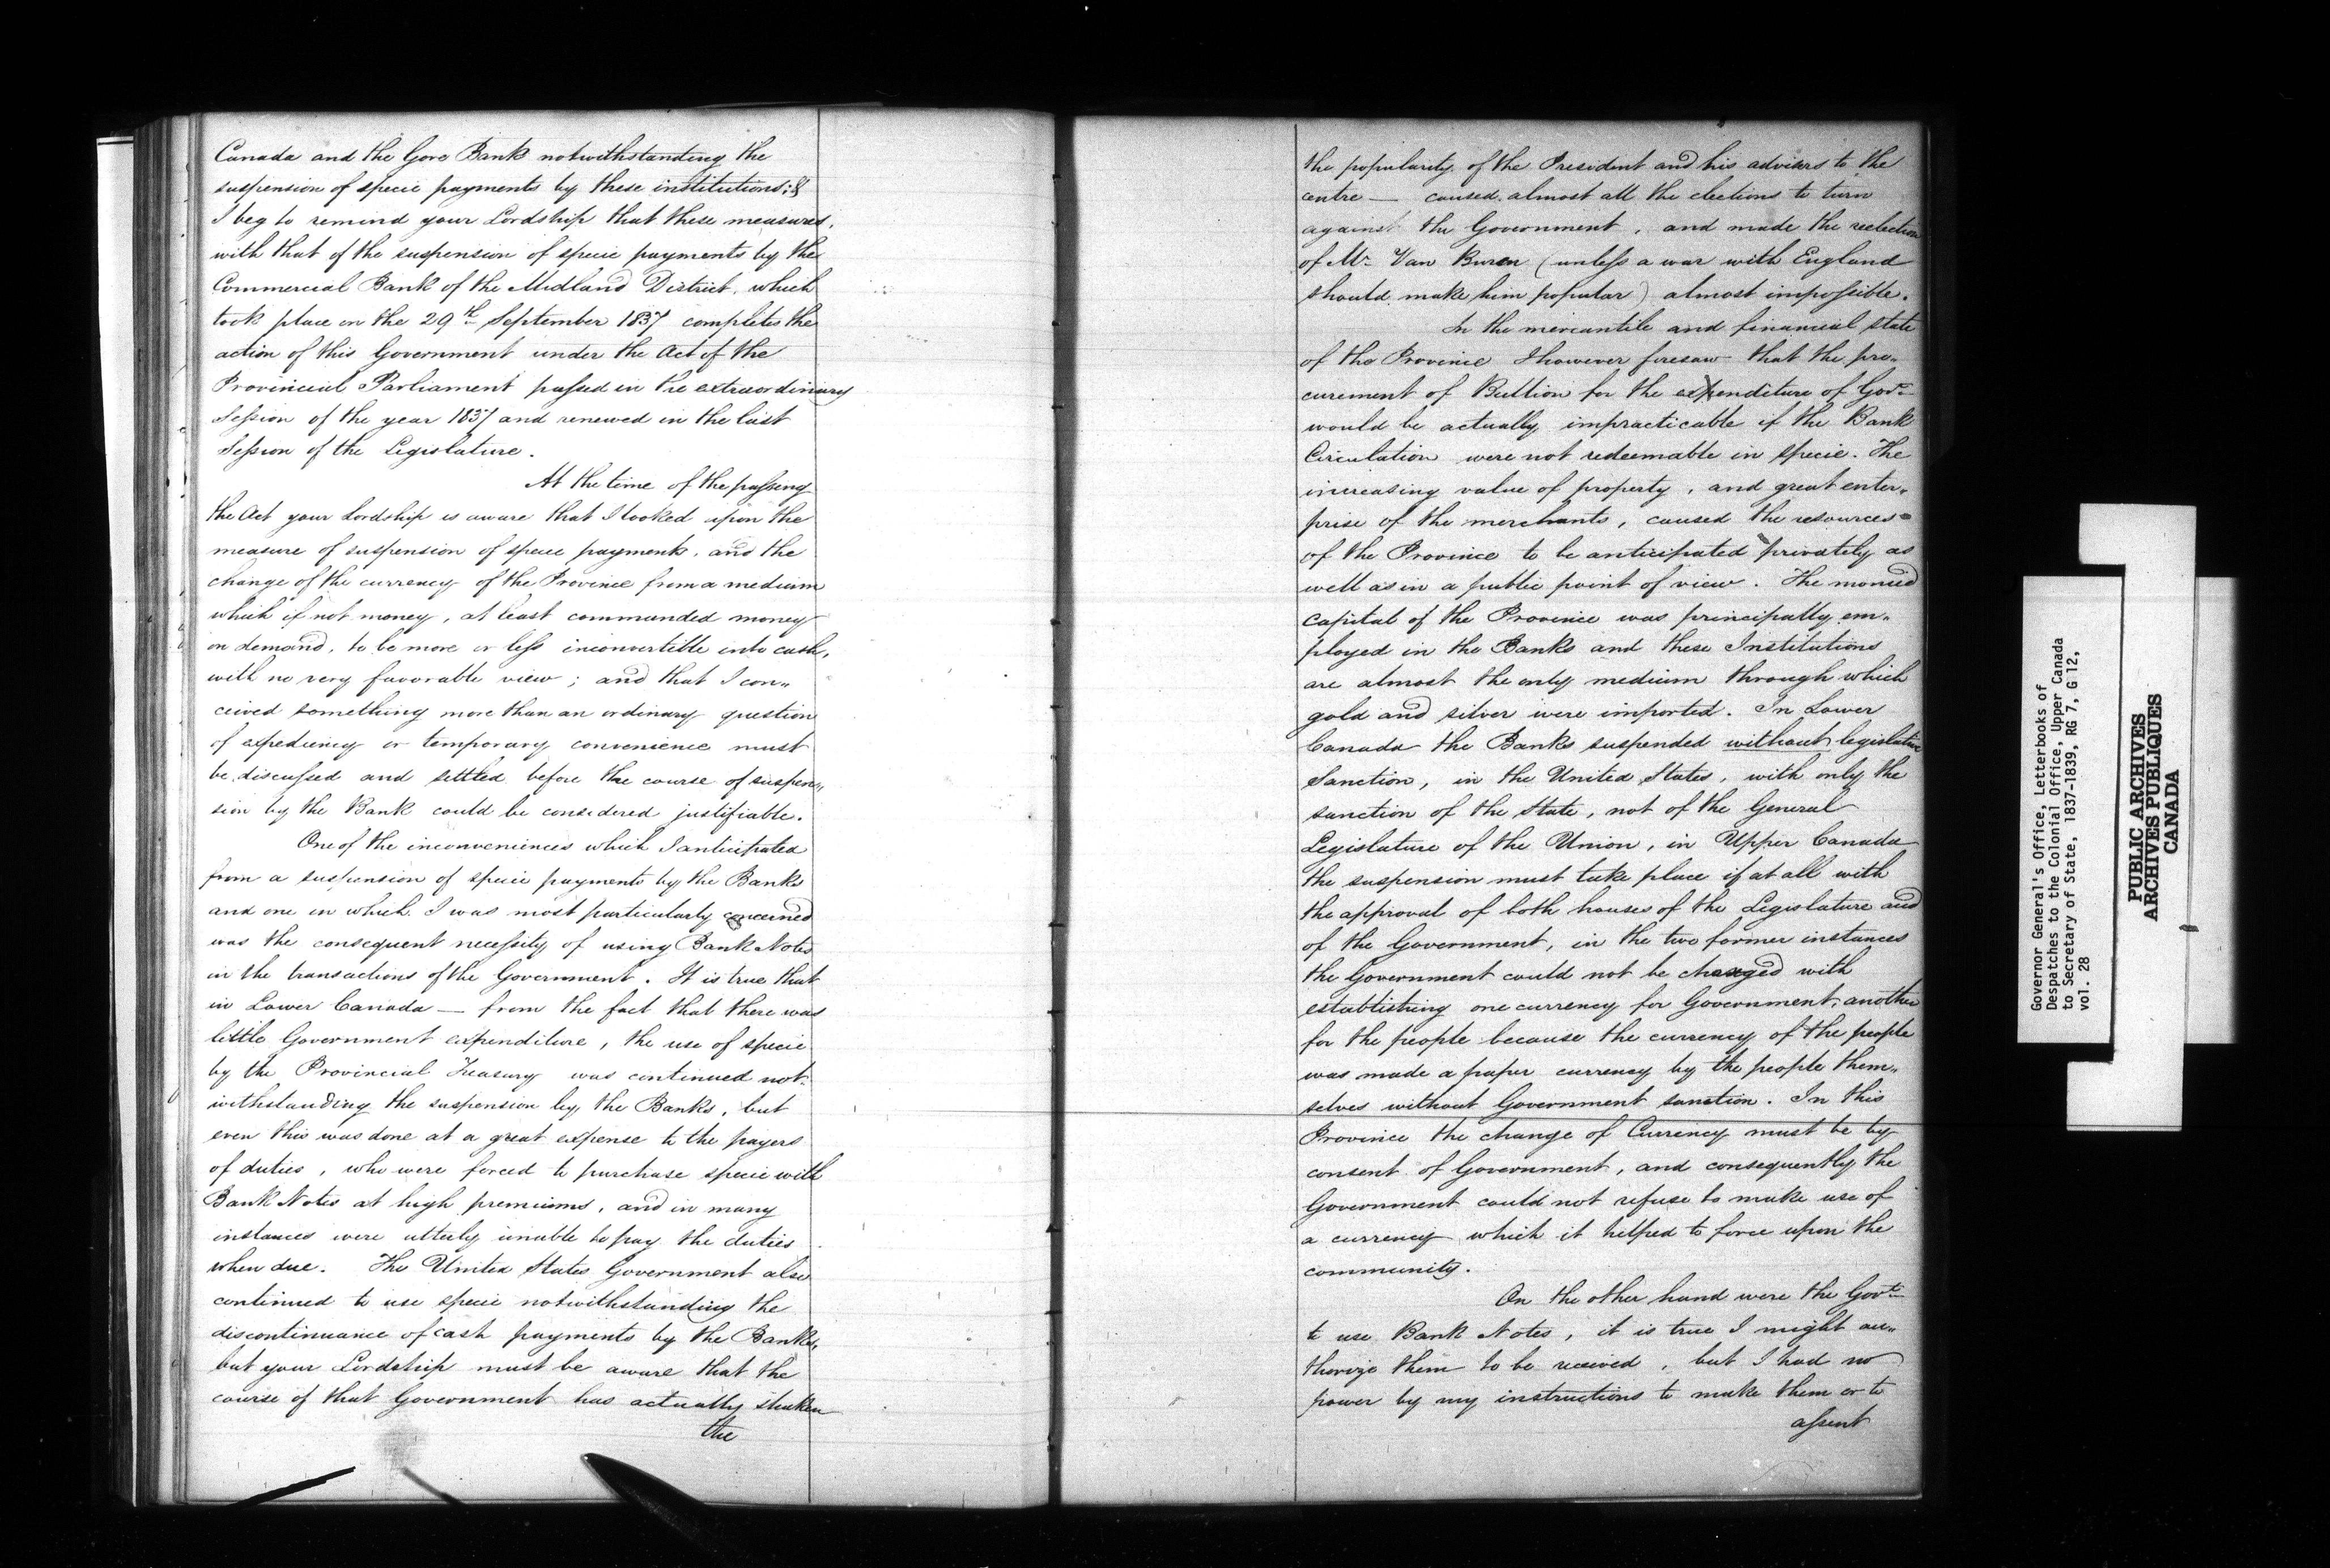 Canada and the Gore Bank notwithstanding the
suspension of specie payments by these institutions; &
I beg to remind your Lordship that these measures,
with that of the suspension of specie payments by the
Commercial Bank of the Midland District, which
took place on the 29th September 1837 completes the
action of this Government under the Act of the
Provincial Parliament passed in the extraordinary
Session of the year 1837 and renewed in the last
Session of the Legislature.
At the time of the passing
the Act your Lordship is aware that I looked upon the
measure of suspension of specie payments, and the
change of the currency of the Province from a medium
which if not money, at least commanded money
on demand, to be more or less inconvertible into cash,
with no very favorable view; and that I con„
ceived something more than an ordinary question
of expediency or temporary convenience must
be discussed and settled before the course of suspen„
sion by the Bank could be considered justifiable.
One of the inconveniences which I anticipated
from a suspension of specie payments by the Banks
and one in which I was most particularly concerned
was the consequent necessity of using Bank Notes
in the transactions of the Government. It is true that
in Lower Canada — from the fact that there was
little Government expenditure, the use of specie
by the Provincial Treasury was continued not„
withstanding the suspension by the Banks, but
even this was done at a great expense to the payers
of duties, who were forced to purchase specie with
Bank Notes at high premiums, and in many
instances were utterly unable to pay the duties
when due. The United States Government also
continued to use specie notwithstanding the
discontinuance of cash payments by the Banks,
but your Lordship must be aware that the
course of that Government has actually shaken
the
the popularity of the President and his advisers to the
centre — caused almost all the elections to turn
against the Government, and made the reelection
of Mr. Van Buren (unless a war with England
should make him popular) almost impossible.
In the mercantile and financial state
of the Province I however foresaw that the pro„
curement of Bullion for the expenditure of Govt.
would be actually impracticable if the Bank
Circulation were not redeemable in specie. The
increasing value of property, and great enter„
prise of the merchants, caused the resources
of the Province to be anticipated privately as
well as in a public point of view. The monied
capital of the Province was principally em„
ployed in the Banks and these Institutions
are almost the only medium through which
gold and silver were imported. In Lower
Canada the Banks suspended without legislative
Sanction, in the United States, with only the
sanction of the State, not of the General
Legislature of the Union, in Upper Canada
the suspension must take place if at all with
the approval of both houses of the Legislature and
of the Government, in the two former instances
the Government could not be charged with
establishing one currency for Government, another
for the people because the currency of the people
was made a paper currency by the people them„
selves without Government sanction. In this
Province the change of Currency must be by
consent of Government, and consequently the
Government could not refuse to make use of
a currency which it helped to force upon the
community.
On the other hand were the Govt.
to use Bank Notes, it is true I might au„
thorize them to be received, but I had no
power by my instructions to make them or to
assent
Governor General's Office, Letterbooks of
Despatches to the Colonial Office, Upper Canada
to Secretary of State, 1837-1839, RG 7, G 12,
vol. 28
PUBLIC ARCHIVES
ARCHIVES PUBLIQUES
CANADA